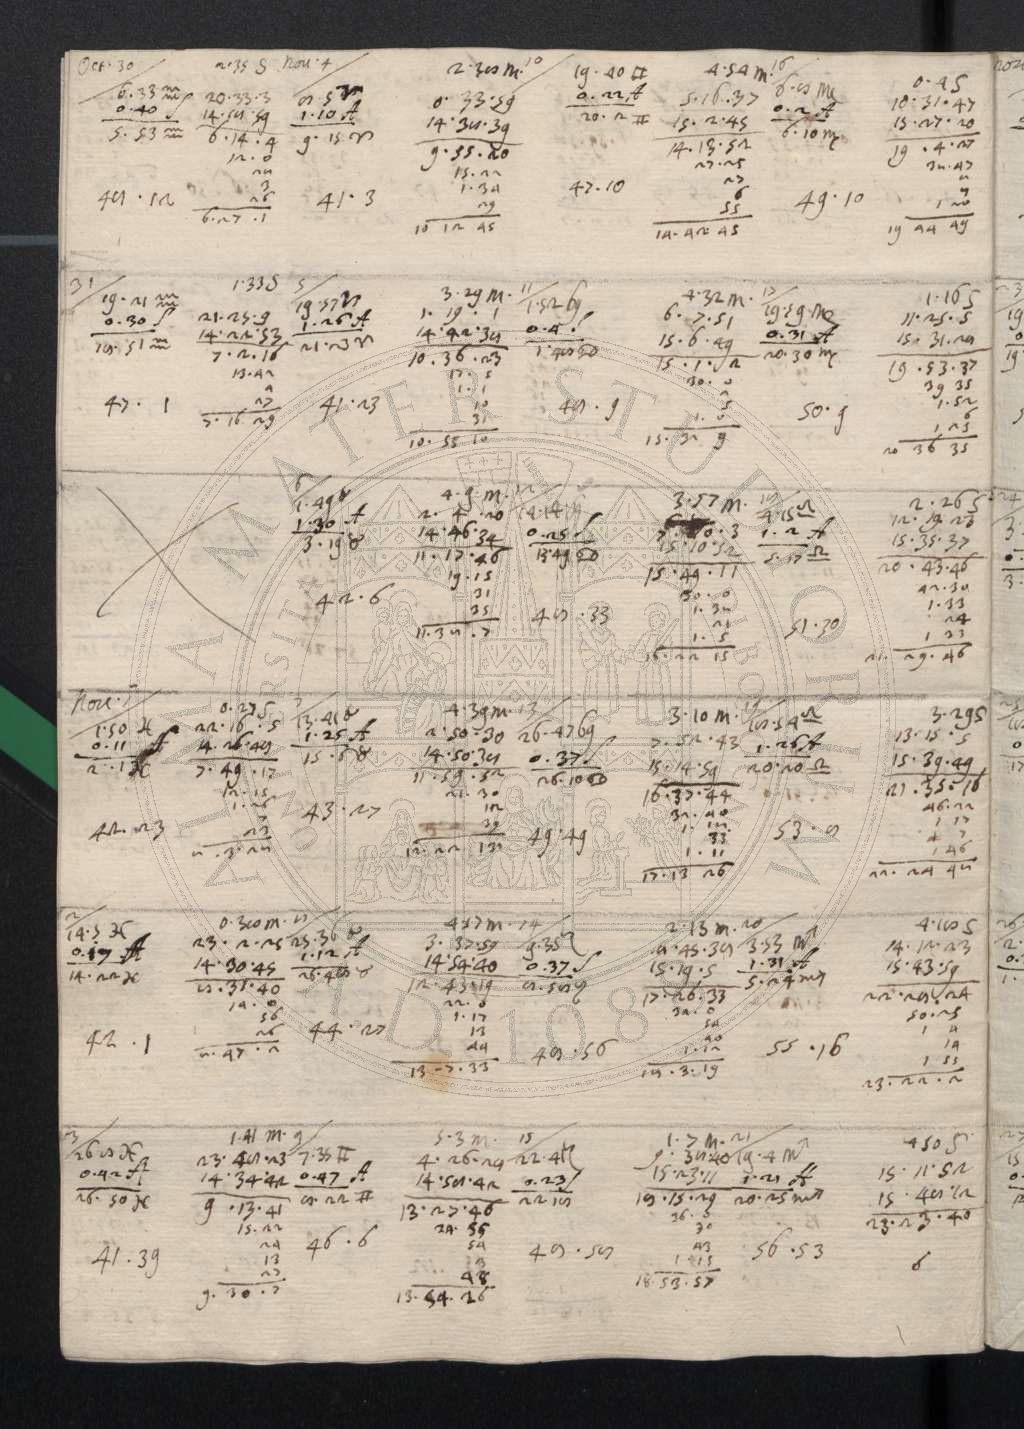 Oct. 30
6.33 ♒
0.40 S
5.53 ♒
48.12
2.35 S
20.33.3
14.18.59
6.14.4
12.0
24
7
26
6.27.1
Nov. 4
8.5 ♈
1.10 A
9.15 ♈
41.3
2.38 M.
0.33.59
14.38.39
9.55.20
15.22
1.34
29
10 12 45
10
19.40 ♊
0.22 A
20.2 ♊
47.10
4.54 M.
5.16.37
15.2.45
14.13.52
27.25
27
6
55
14.42 45
16
6.8 ♍
0.2 A
6.10 ♍
49.10
0.4 S
10.31.47
15.27.20
19.4.27
38.47
6
9
1 20
19 44 49
31
19.21 ♒
0.30 S
18.51 ♒
47.1
1.33 S
21.25.9
14.22.53
7.2.16
13.42
4
27
7.16 29
5
19.57 ♈
1.26 A
21.23 ♈
41.23
3.29 M.
1.19.1
14.42.38
10.36.23
17.5
1.1
10
31
10.55 10
11
1.52 ♋
0.4 S
1.48 ♋
48.9
4.32 M.
6.7.51
15.6.49
15.1.2
30.0
2
5
1.0
15.32 9
17
19.59 ♍
0.31 A
20.30 ♍
50.9
1.16 S
11.25.5
15.31.28
19.53.37
39 35
1.52
6
1.25
20 36 35
6
1.49 ♉
1.30 A
3.19 ♉
42.6
4.9 M.
2.4.20
14.46.34
11.17.46
19.15
31
35
11.38.7
12
14.14 ♋
0.25 S
13.49 ♋
48.33
3.57 M.
7.0.3
15.10.52
15.49.11
30.0
1.38
21
1.5
16.22 15
18
4.15 ♎
1.2 A
5.17 ♎
51.30
2.26 S
12.19.23
15.35.37
20.43.46
42.30
1.33
24
1 33
21.29.46
Nov. 1
1.50 ♓
0.11 A
2.1 ♓
42.23
0.27 S
22.16.5
14.26.48
7.49.17
12.15
1.26
7
23
8.3.28
7
13.41 ♉
1.25 A
15.6 ♉
43.27
4.39 M.
2.50.30
14.50.38
11.59.52
21.30
12
39
12.22 13
13
26.47 ♋
0.37 S
26.10 ♋
49.49
3.10 M.
7.52.43
15.14.59
16.37.44
32.40
1.18
33
1.11
17.13 26
19
18.54 ♎
1.26 A
20.20 ♎
53.8
3.29 S
13.15.5
15.39.49
21.35.16
46.22
1 17
7
1 46
22.24 48
2
14.3 ♓
0.19 A
14.22 ♓
42.1
0.38 M.
23.2.25
14.30.45
8.31.40
14.0
56
26
8.47.2
8
25.36 ♉
1.12 A
26.48 ♉
44.27
4.57 M.
3.37.59
14.54.40
12.43.19
22.0
1.17
13
44
13.7.33
14
9.35 ♌
0.37 S
8.58 ♌
48.56
2.13 M.
8.45.38
15.19.5
17.26.33
34.0
54
40
1.12
18.3.19
20
3.53 ♏
1.31 A
5.24 ♏
55.16
4.18 S
14.12.23
15.43.59
22.28.24
50.25
1 4
14
1 55
23.22.2
3
26.8 ♓
0.42 A
26.50 ♓
41.39
1.41 M.
23.48.23
14.34.42
9.13.41
15.22
24
13
27
9.30.7
9
7.35 ♊
0.47 A
8.22 ♊
46.6
5.3 M.
4.26.28
14.58.42
13.27.46
24.55
54
3
48
13.54.26
15
22.41 ♌
0.23 S
22 18
48.58
1.7 M.
9.38.40
15.23.11
18.15.29
36.0
30
43
1 15
18.53.57
21
19.4 ♏
1.21 A
20.25 ♏
56.53
4.50 S
15.11.52
15.48.12
23.23.40
6